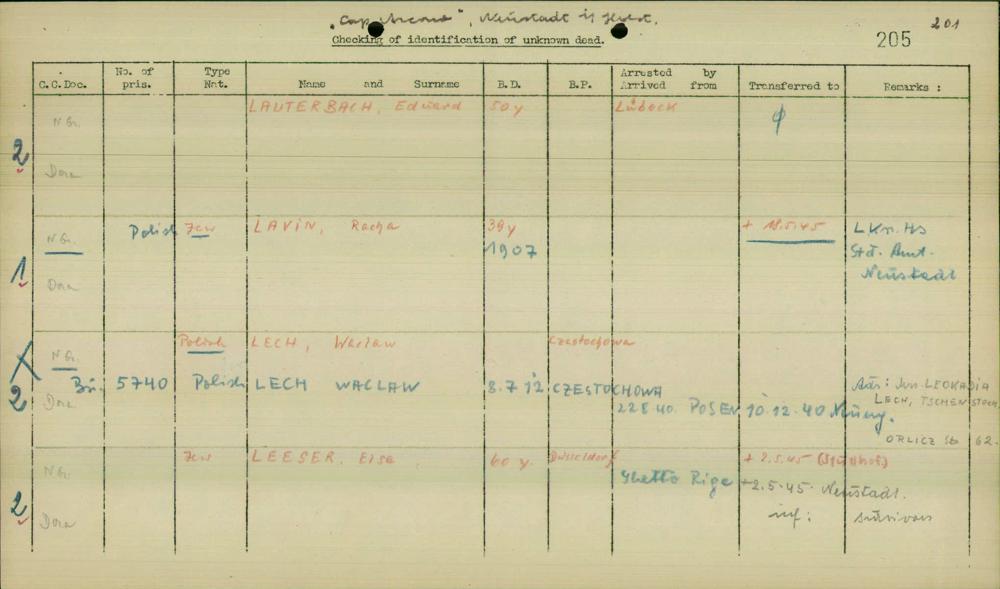 "Cap Arcona", Neustadt i/ Holst.
201
Checking of identification of unknown dead.
205
C.C.Doc. No. of pris. Type Nat. Name and Surname B.D. B.P. Arrested by Arrived from Transferred to Remarks :
N Gr. LAUTERBACH, Eduard 50 y Lübeck
2
Dora
N Gr. Polish Jew LAVIN, Racha 39 y + 18.5.45 LKr. Hs
1907 Std. Amt.
1 Neustadt
Dora
N Gr. Polish LECH, Waclaw Czestochowa
Bu. 5740 Polish LECH WACLAW 8.7 12 CZESTOCHOWA Adr: LEOKADIA
2 Dora 22 8 40. POSEN 10.12.40 LECH, TSCHENSTOCH.
ORLICZ Str 62.
N Gr. Jew LEESER, Else 60 y. Düsseldorf + 2.5.45 (Stutthof)
Ghetto Riga +2.5.45. Neustadt.
2 Dora inf: survivors